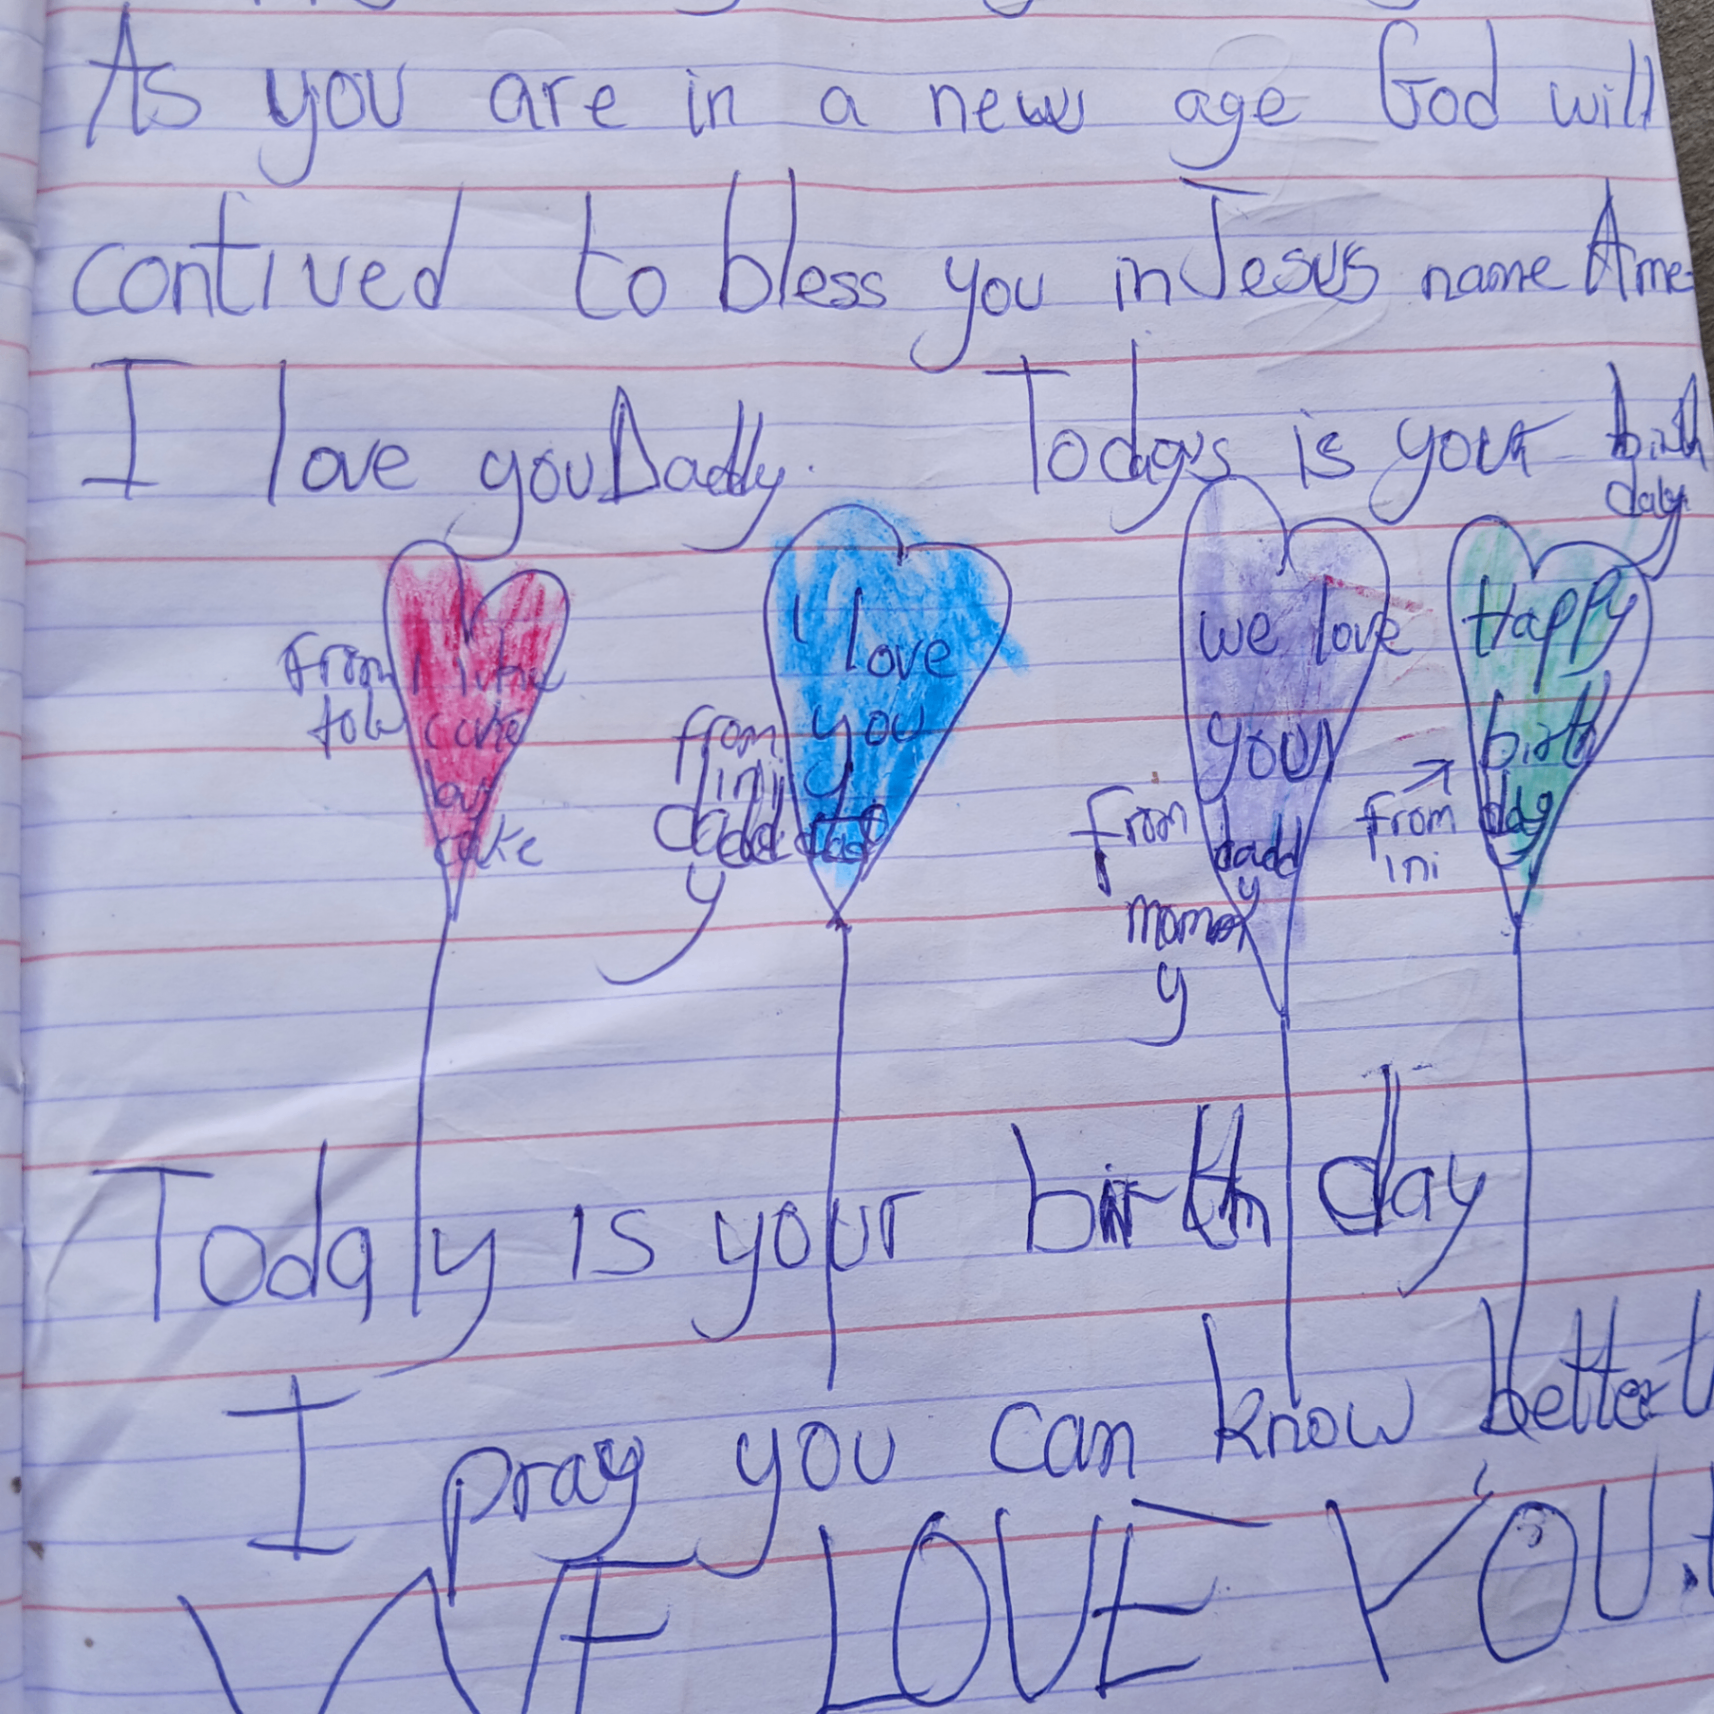 As you are in a new age God will
contived to bless you in Jesus name Ame
I love you Daddy. Todays is your birth
day
From
I love
you
from
ini
daddy
we love
you
daddy
from
mommy
Happy
birth
day
from
ini
cake
Today is your birth day
I pray you can know better
WE LOVE YOU.